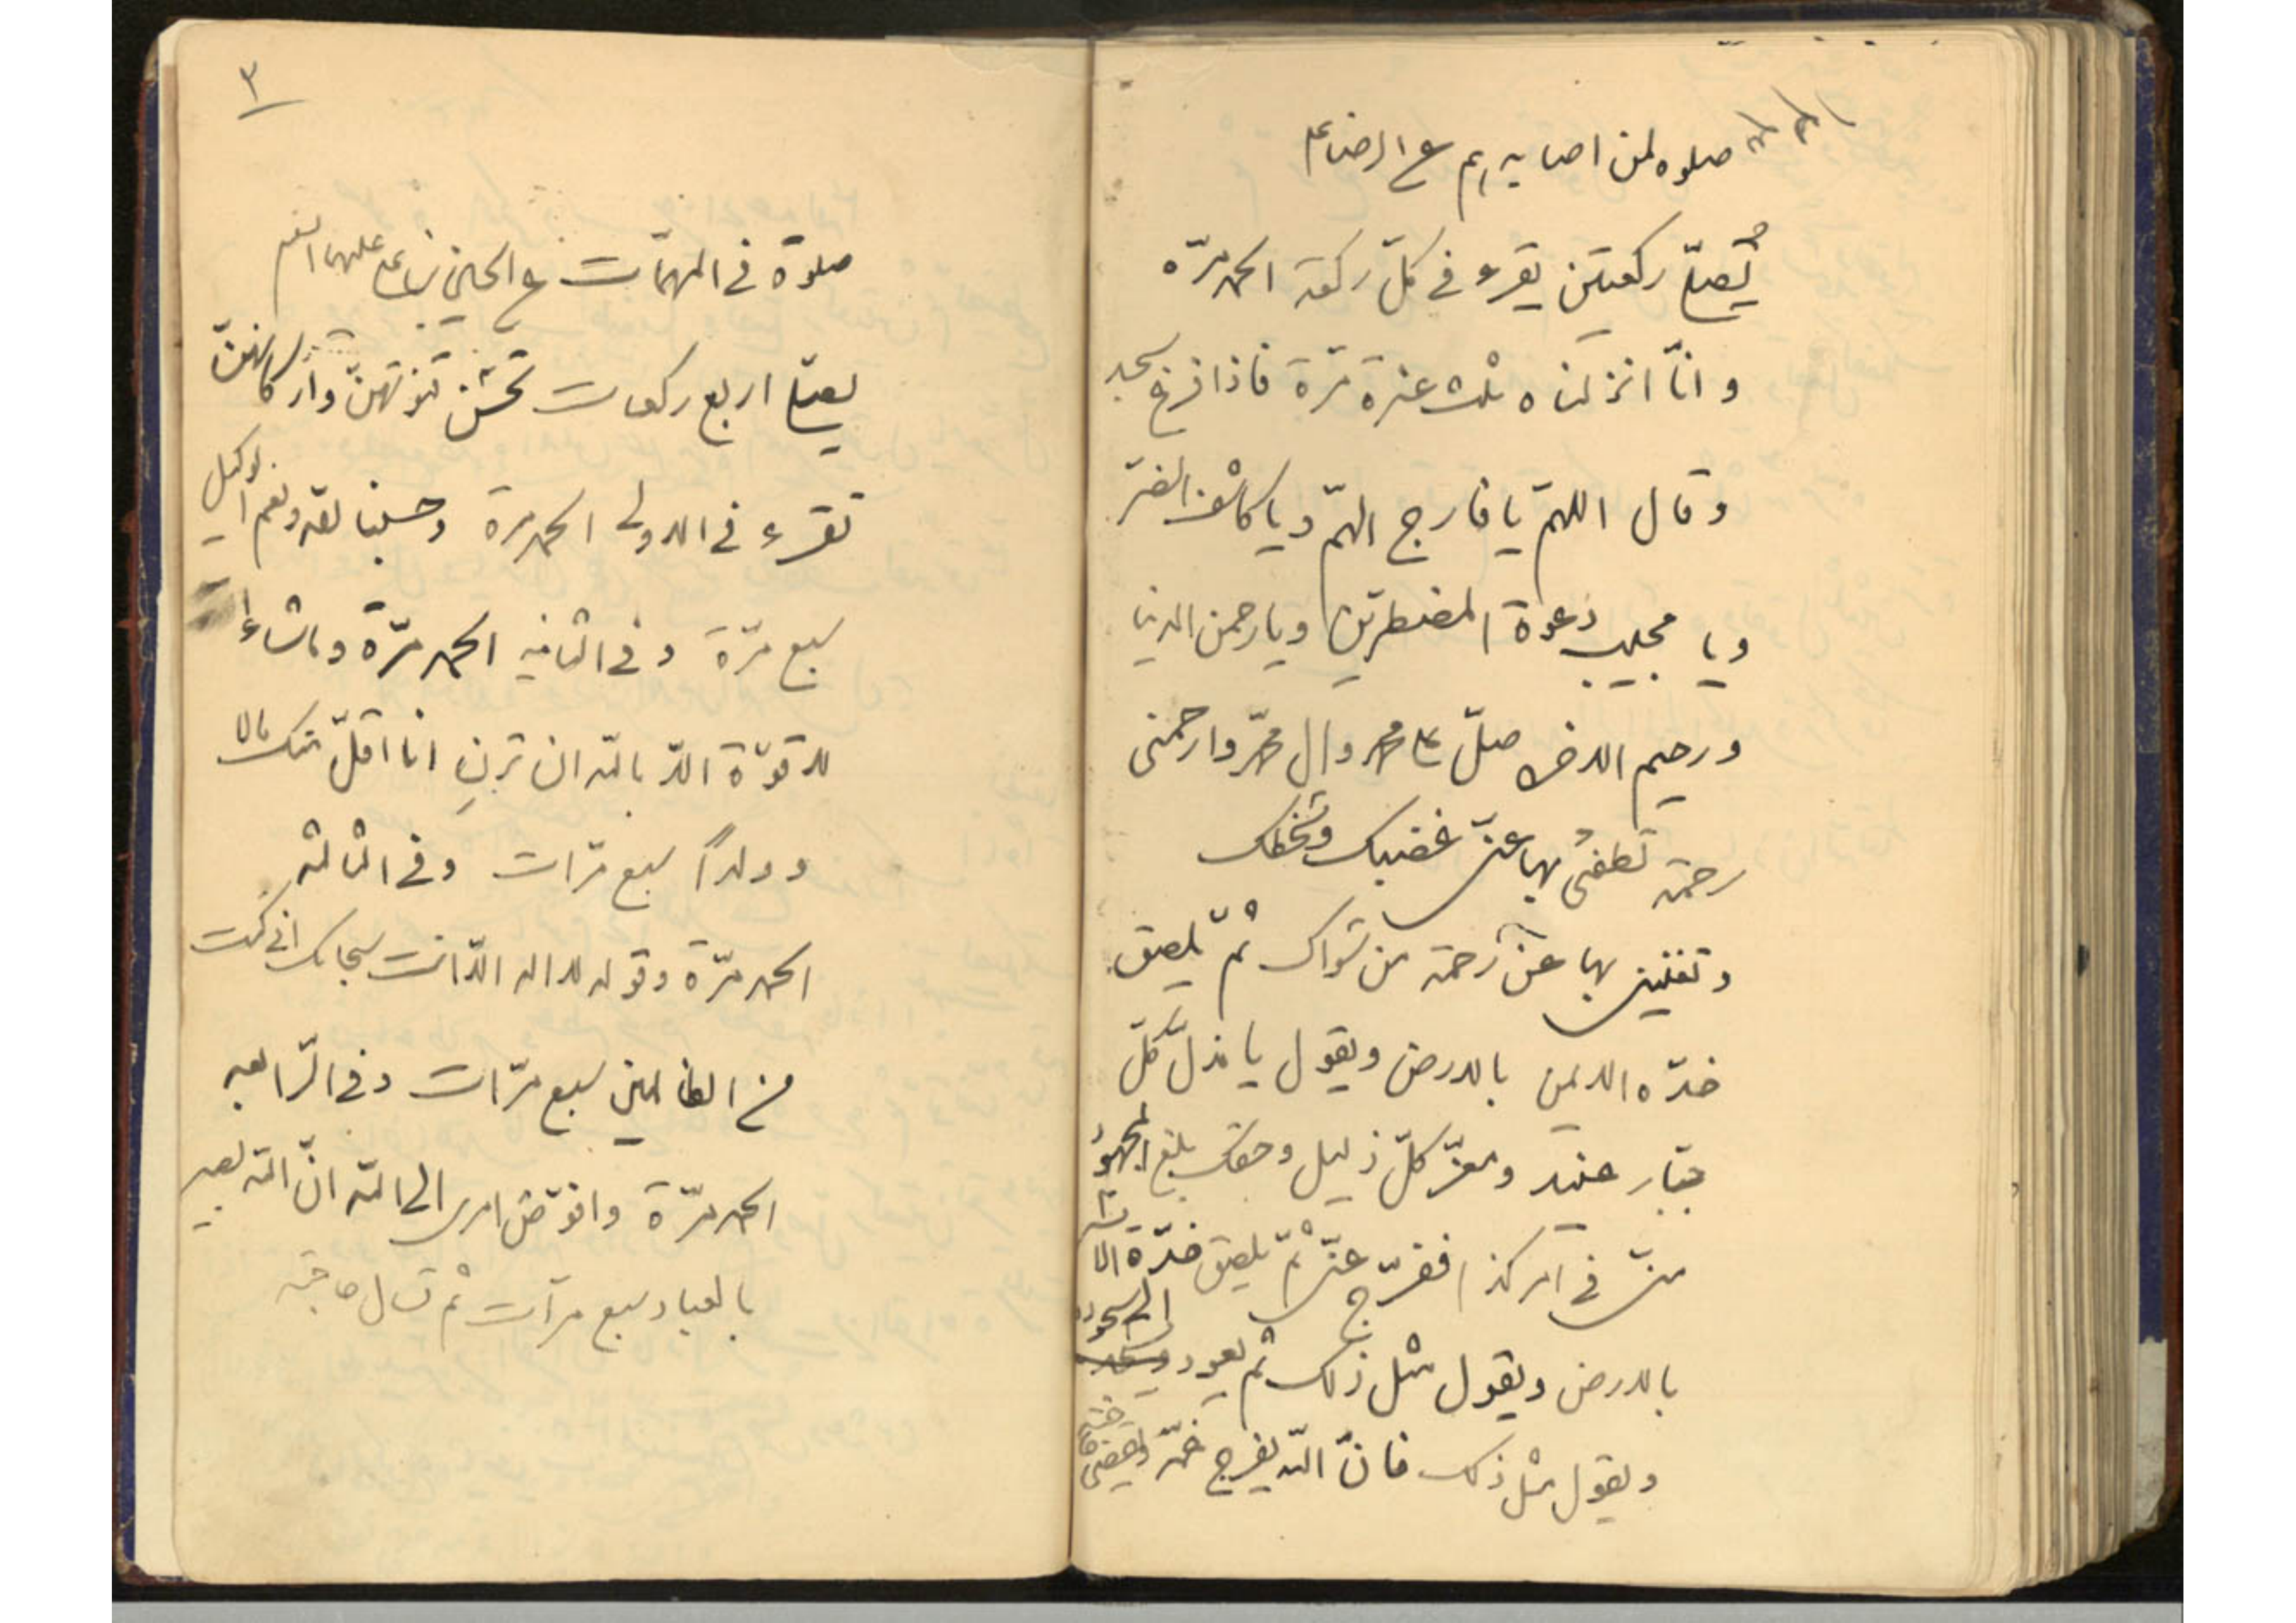 صلوه لمن اصابه هم ع الرضا ع
يُصلّے ركعتين يقرء فے كلّ ركعة الحمد مرّه
و انّا انزلناه ثلث عشرة مرّة فاذا فرغ سجد
و قال اللهمّ يا فارج الهمّ و يا كاشف الضرّ
و يا مجيب دعوة المضطرّين و يا رحمن الدنيا
و رحيم الاخره صلّ على محمد و ال محمّد و ارحمنى
رحمة تطفئُ بها عنّى غضبك و سخطك
و تغنينى بها عن رحمة من سواك ثمّ يلصق
خدّه الايمن بالارض و يقول يا مذلّ كلّ
جبّار عنيد و معزّ كلّ ذليل و حقك بلغ المجهودُ
منّى فے امر كذا ففرّج عنّى ثمّ يلصق خدّه الايسر
بالارض و يقول مثل ذلك ثمّ يعود الى سجوده
و يقول مثل ذلك فانّ اللّه يفرج غمّه و يقضى حاجته
٣
صلوة فے المهمّات ع الحسين بن على عليهما السلام
يصلّے اربع ركعات تحسّن قنوتهنّ و اركانهنّ
تقرء فے الاولى الحمد مرة و حسبنا الله و نعم الوكيل
سبع مرّة و فے الثانيه الحمد مرّة و ما شاء
لا قوّة الّا باللّه ان ترنِ انا اقلّ منك مالا
و ولداً سبع مرّات و فے الثالثه
الحمد مرّة و قوله لا اله الّا انت سبحانك انى كنت
من الظالمين سبع مرّات و فے الرّابعه
الحمد مرّة و افوّض امرى الى اللّه انّ اللّه بصير
بالعباد سبع مرّات ثم تسال حاجته